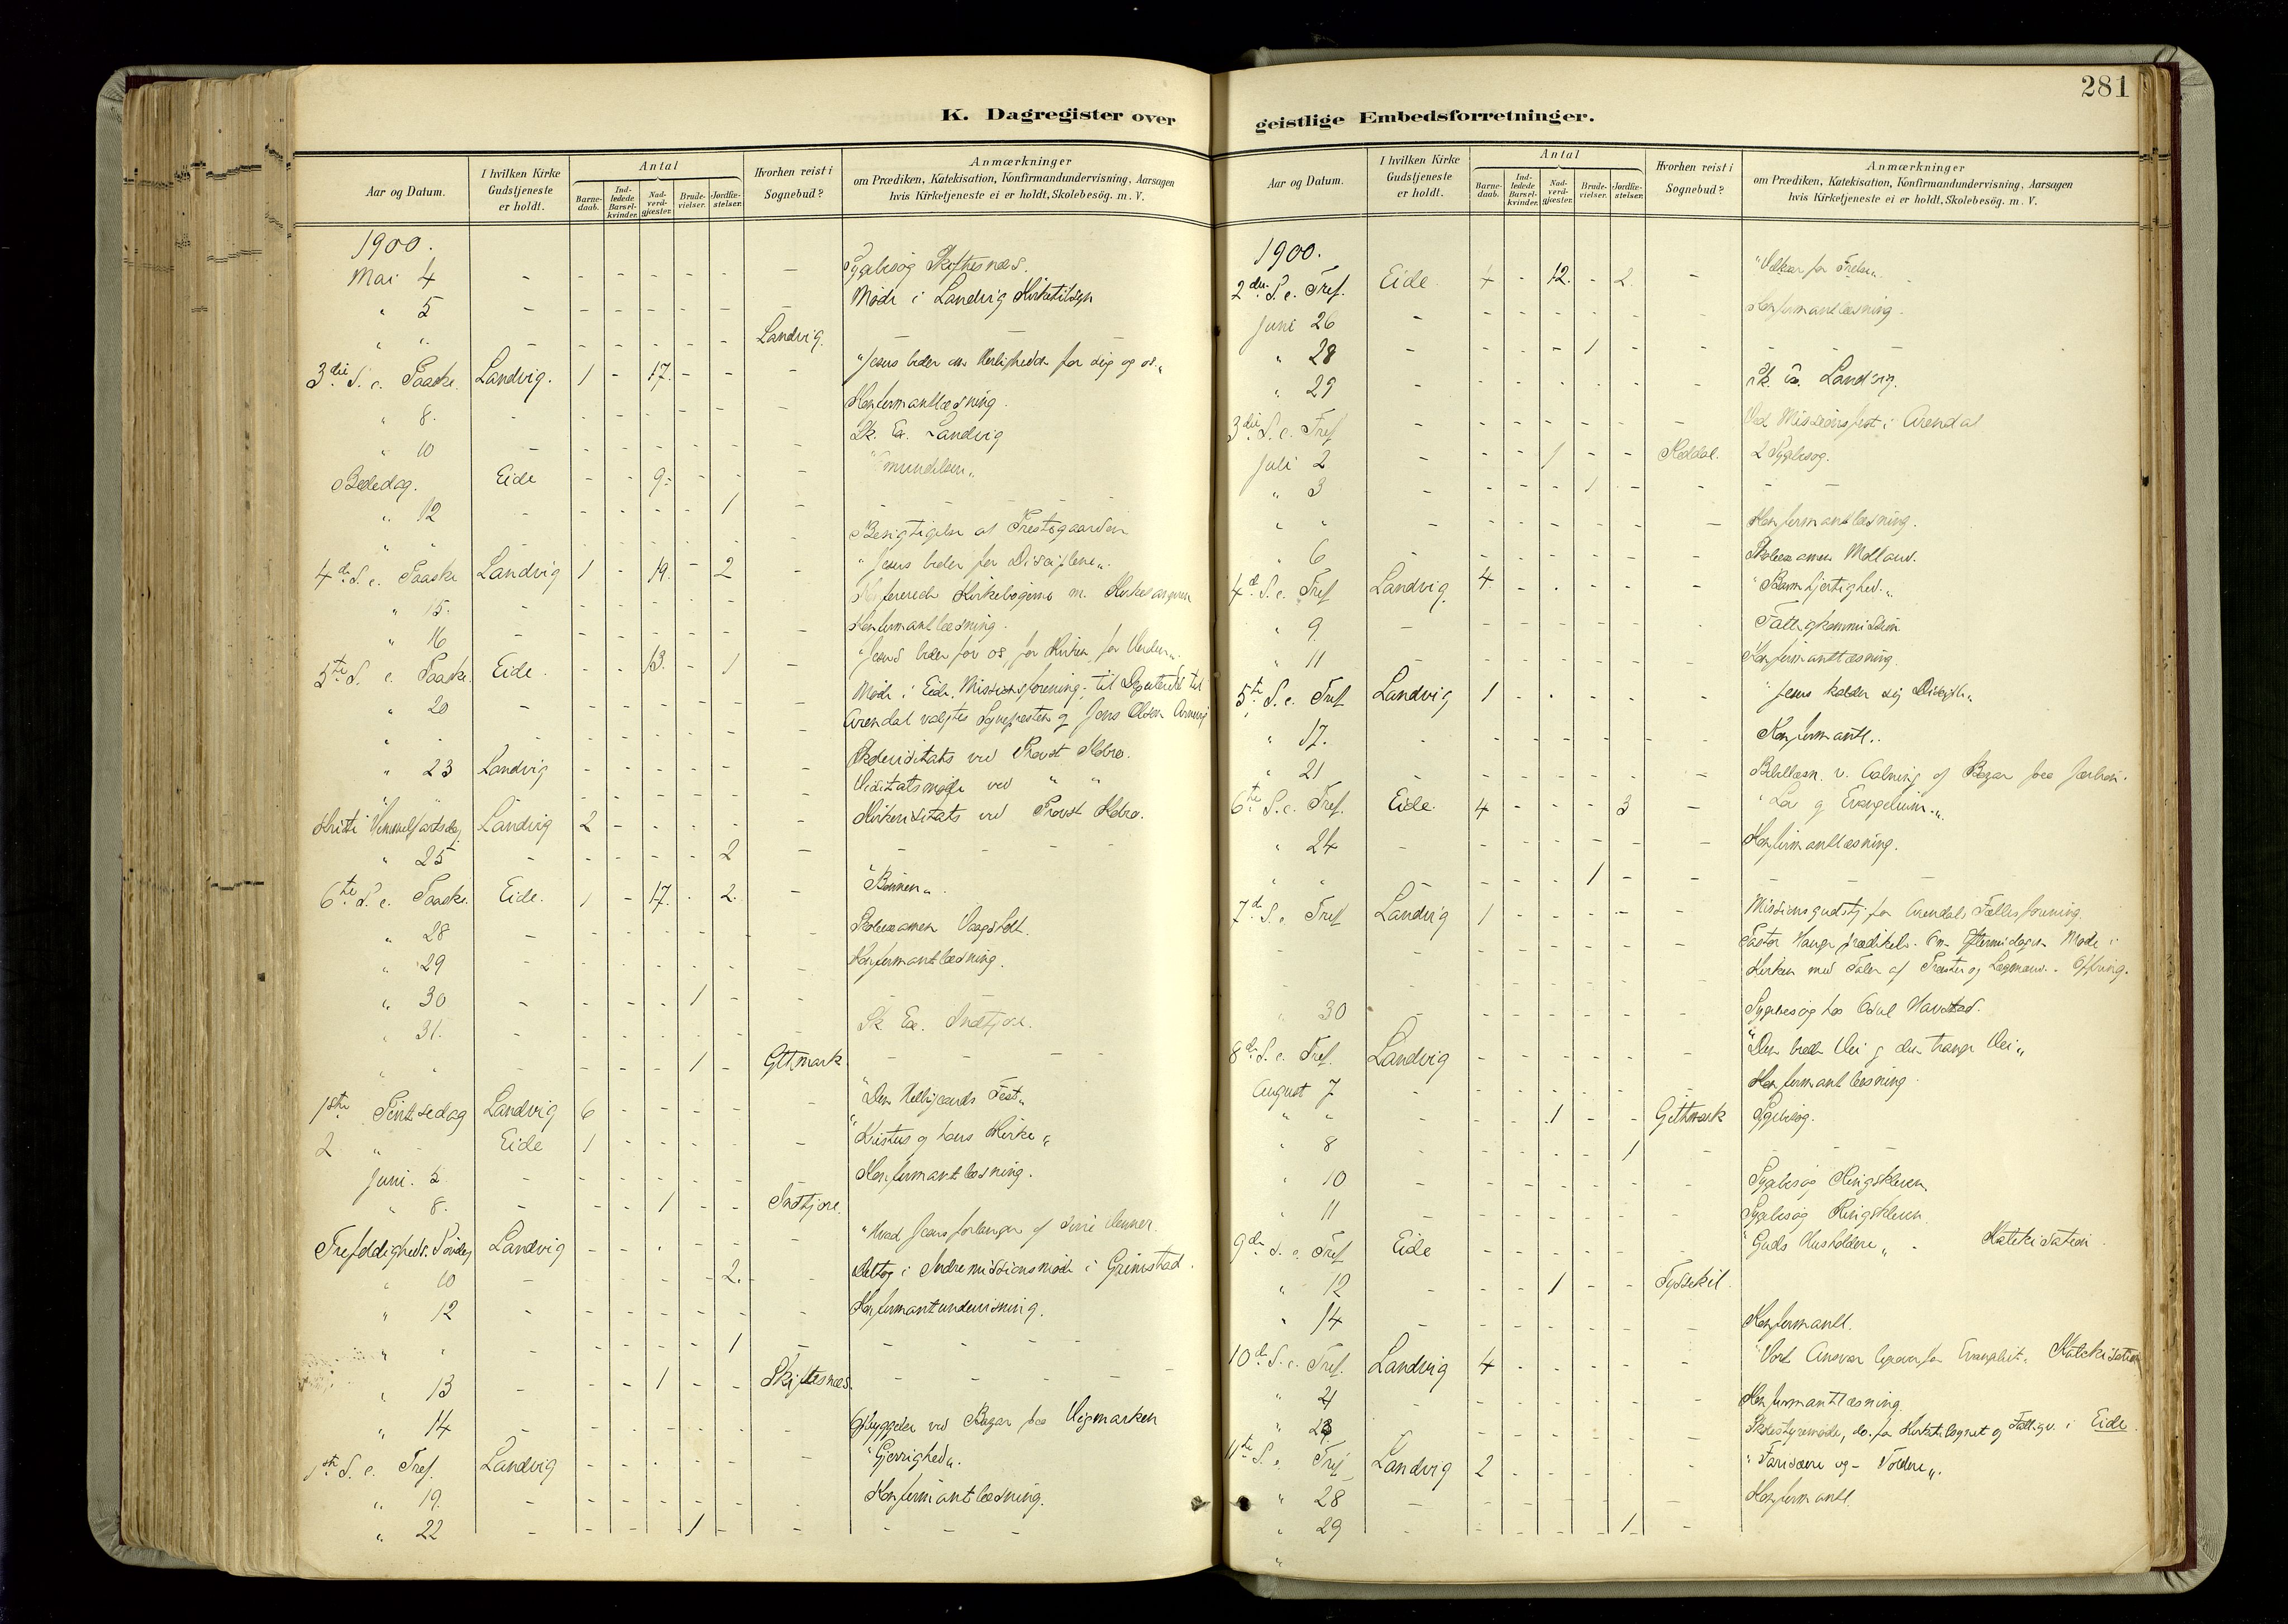 281
K. Dagregister over
Aar og Datum.
I hvilken Kirke Gudstjeneste er holdt.
Antal
Barne-daab.
Ind-ledede Barsel-kvinder.
Nad-verd-gjæster.
Brude-vielser.
Jordfæ-stelser.
Hvorhen reist i Sognebud?
Anmærkninger
om Prædiken, Katekisation, Konfirmandundervisning, Aarsagen
hvis Kirketjeneste ei er holdt, Skolebesög. m. V.
1900.
Mai 4 - - - - - - - Sygebesög Skiftesnæs.
" 5 - - - - - - - Möde i Landvig Kirketilsyn
" " - - - - - - Landvig. - -
3die S. e. Paaske. Landvig. 1 - 17. - - - "Jesus beder om Herlighed for sig og os."
" 8. - - - - - - - Konfirmantlæsning.
" 10 - - - - - - - Sk. Ex. Landvig
Bededag. Eide - - 9. - - -
" 12 - - - - - 1 - -
" " - - - - - - - Besigtigelse af Præstegaarden
4de S. e. Paaske Landvig 1 - 19. - 2 - "Jesus beder for Disciplene".
" 15. - - - - - - - Kirkebögerne m.
" 16 - - - - - - - Konfirmantlæsning.
5te S. e. Paaske. Eide. - - 13. - 1 - "Jesus beder for os, for Kirken, for Verden".
" 20 - - - - - - - Möde i Eide Missionsforening; til Deputerede til
" - - - - - - - Arendal valgtes Sognepresten og Jens Olsen
" 23 Landvig - - - - - - visitats ved Provst
- - - - - - Visitatsmöde ved " "
Kristi Himmelfartsdag Landvig 2 - - - - - Kirkevisitats ved Provst
" 25 - - - - - 2 - - -
6te S. e. Paaske. Eide. 1 - 17. - 2. - "Bönnen".
" 28 - - - - - - - Skoleexamen Vaagsholt.
" 29 - - - - - - - Konfirmantlæsning.
" 30 - - - - 1 - -
" 31. - - - - - - - Sk Ex. Indtjore.
" " - - - - 1 - Gttmark. - - -
1ste Pintsedag Landvig 6 - - - - - "Den Helligaands Fest"
2 " Eide 1 - - - - - "Kristus og hans Kirke"
Juni. 5 - - - - - - - Konfirmantlæsning.
" 8. - - - 1 - - Indtjore.
Trefoldigheds. Söndag Landvig - - - - - - "Hvad Jesus forlanger af sine Venner.
" 10 - - - - - 2. - Deltog i Indremissionsmöde i Grimstad.
" 12 - - - - - - - Konfirmantundervisning.
" " - - - - - 1 - - - -
" 13 - - - 1 - - Skiftesnæs. - - -
" 14 - - - - - - - Opbyggelse ved Bazar hos Vigemarken
1ste S. e. Tref. Landvig - - - - - - "Gjerrighed".
" 19. - - - - - - - Konfirmantlæsning.
" 22 - - - - 1 - - - - -
geistlige Embedsforretninger.
Aar og Datum.
I hvilken Kirke Gudstjeneste er holdt.
Antal
Barne-daab.
Ind-ledede Barsel-kvinder.
Nad-verd-gjæster.
Brude-vielser.
Jordfæ-stelser.
Hvorhen reist i Sognebud?
Anmærkninger
om Prædiken, Katekisation, Konfirmandundervisning, Aarsagen
hvis Kirketjeneste ei er holdt, Skolebesög. m. V.
1900.
2den S. e. Tref. Eide. 4 - 12. - 2. - "Vilkaar for Frelse".
Juni 26 - - - - - - - Konfirmantlæsning.
" 28 - - - - 1 - - - -
" 29 - - - - - - - Sk. Ex. Landvig.
3die S. e. Tref - - - - - - - Ved Missionsfest i Arendal
Juli 2 - - - 1 - - Roddal. 2 Sygebesög.
" 3 - - - - 1 - - - -
" " - - - - - - - Konfirmantlæsning.
" 6 - - - - - - - Skoleexamen Molland.
4de S. e. Tref Landvig 4 - - - - - "Barmhjertighed".
" 9. - - - - - - - Fattigkommission
" 11 - - - - - - - Konfirmantlæsning.
5te S. e. Tref Landvig 1 - - - - - "Jesus kalder sig Disciple".
" 17. - - - - - - - Konfirmantl.
" 21 - - - - - - - Bibellæsn. v. Aabning af Bazar hos
6te S. e. Tref. Eide. 4 - - - 3 - "Lov og Evangelium".
" 24 - - - - - - - Konfirmantlæsning.
" " - - - - 1 - - - -
7de S. e. Tref Landvig 1 - - - - - Missionsgudstj. for Arendals Fællesforening.
- - - - - - - Pastor Hauge prædikede. Om Eftermidagen Möde i
- - - - - - - Kirken med Taler af Præster og Lægmænd. Ofring.
" 30 - - - - - - - Sygebesög hos
8de S. e. Tref. Landvig - - - - - - "Den brede Vei og den trange Vei"
August 7 - - - - - - - Konfirmantlæsning.
" " - - - 1 - - Gittmark Sygebesög.
" 8 - - - - - 1 - - -
" 10 - - - - - - - Sygebesög Ringskleven.
" 11 - - - - - - - Sygebesög Ringskleven.
9de S. e. Tref Eide - - - - - - "Guds Husholdere". - Katekisation.
" 12 - - - 1 - - Tyssekil.
" 14 - - - - - - - Konfirmantl.
10de S. e. Tref. Landvig 4 - - - - - "Vort Ansvar ligeoverfor Evangeliet". Katekisation
" 21 - - - - - - - Konfirmantlæsning.
" 23 - - - - - - - Skolestyremöde, do. for Kirketilsynet og Fattigv. i Eide.
11te S. e. Tref Landvig 2 - - - - - "Farisæere og Toldere".
" 28 - - - - - - - Konfirmantl.
" 29 - - - - - 1 -
"